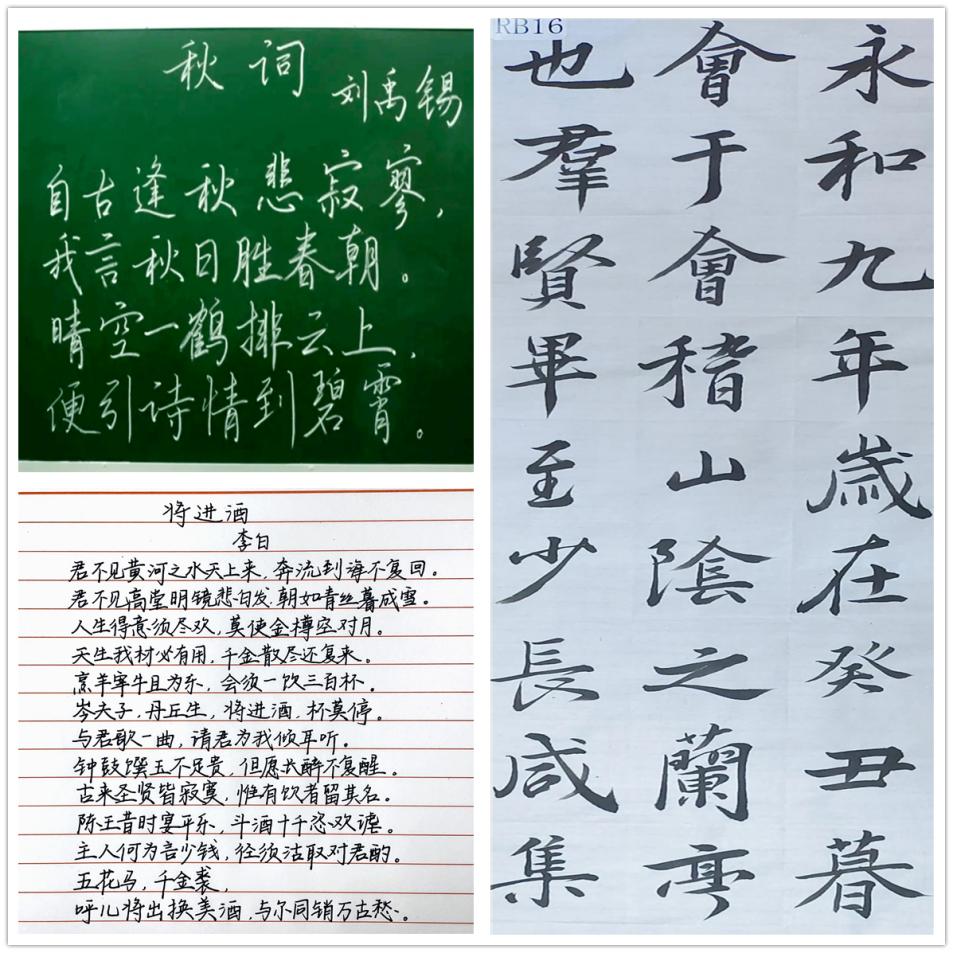 秋词
刘禹锡
自古逢秋悲寂寥，
我言秋日胜春朝。
晴空一鹤排云上，
便引诗情到碧霄。
将进酒
李白
君不见黄河之水天上来，奔流到海不复回。
君不见高堂明镜悲白发，朝如青丝暮成雪。
人生得意须尽欢，莫使金樽空对月。
天生我材必有用，千金散尽还复来。
烹羊宰牛且为乐，会须一饮三百杯。
岑夫子，丹丘生，将进酒，杯莫停。
与君歌一曲，请君为我倾耳听。
钟鼓馔玉不足贵，但愿长醉不复醒。
古来圣贤皆寂寞，惟有饮者留其名。
陈王昔时宴平乐，斗酒十千恣欢谑。
主人何为言少钱，径须沽取对君酌。
五花马，千金裘，
呼儿将出换美酒，与尔同销万古愁。
RB16
永和九年歲在癸丑暮
會于會稽山陰之蘭亭
也羣賢畢至少長咸集